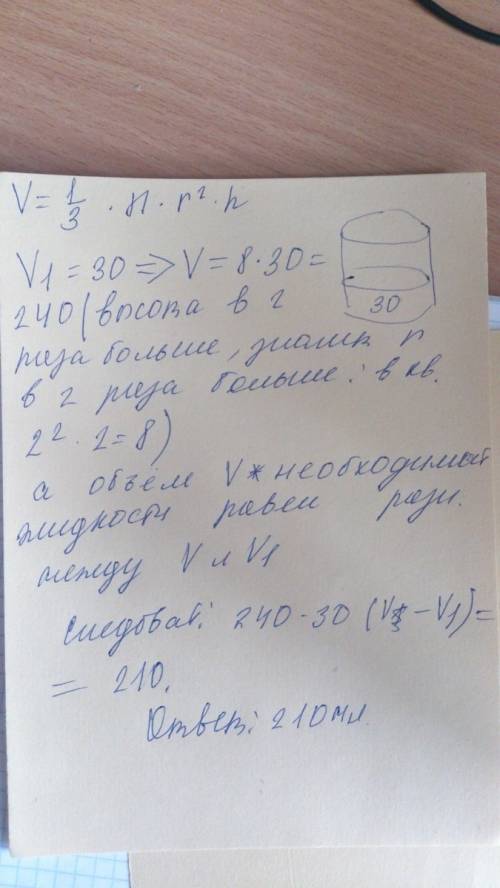 V = 1/3 · π · r² · h
V1 = 30 => V = 8 · 30 =
30
240 (высота в 2
раза больше, значит r
в 2 раза больше: в кв.
2² · 2 = 8)
а объём V* необходимый
жидкости равен разн.
между V и V1
следоват: 240 - 30 (V - V1) =
= 210.
Ответ: 210 мл.